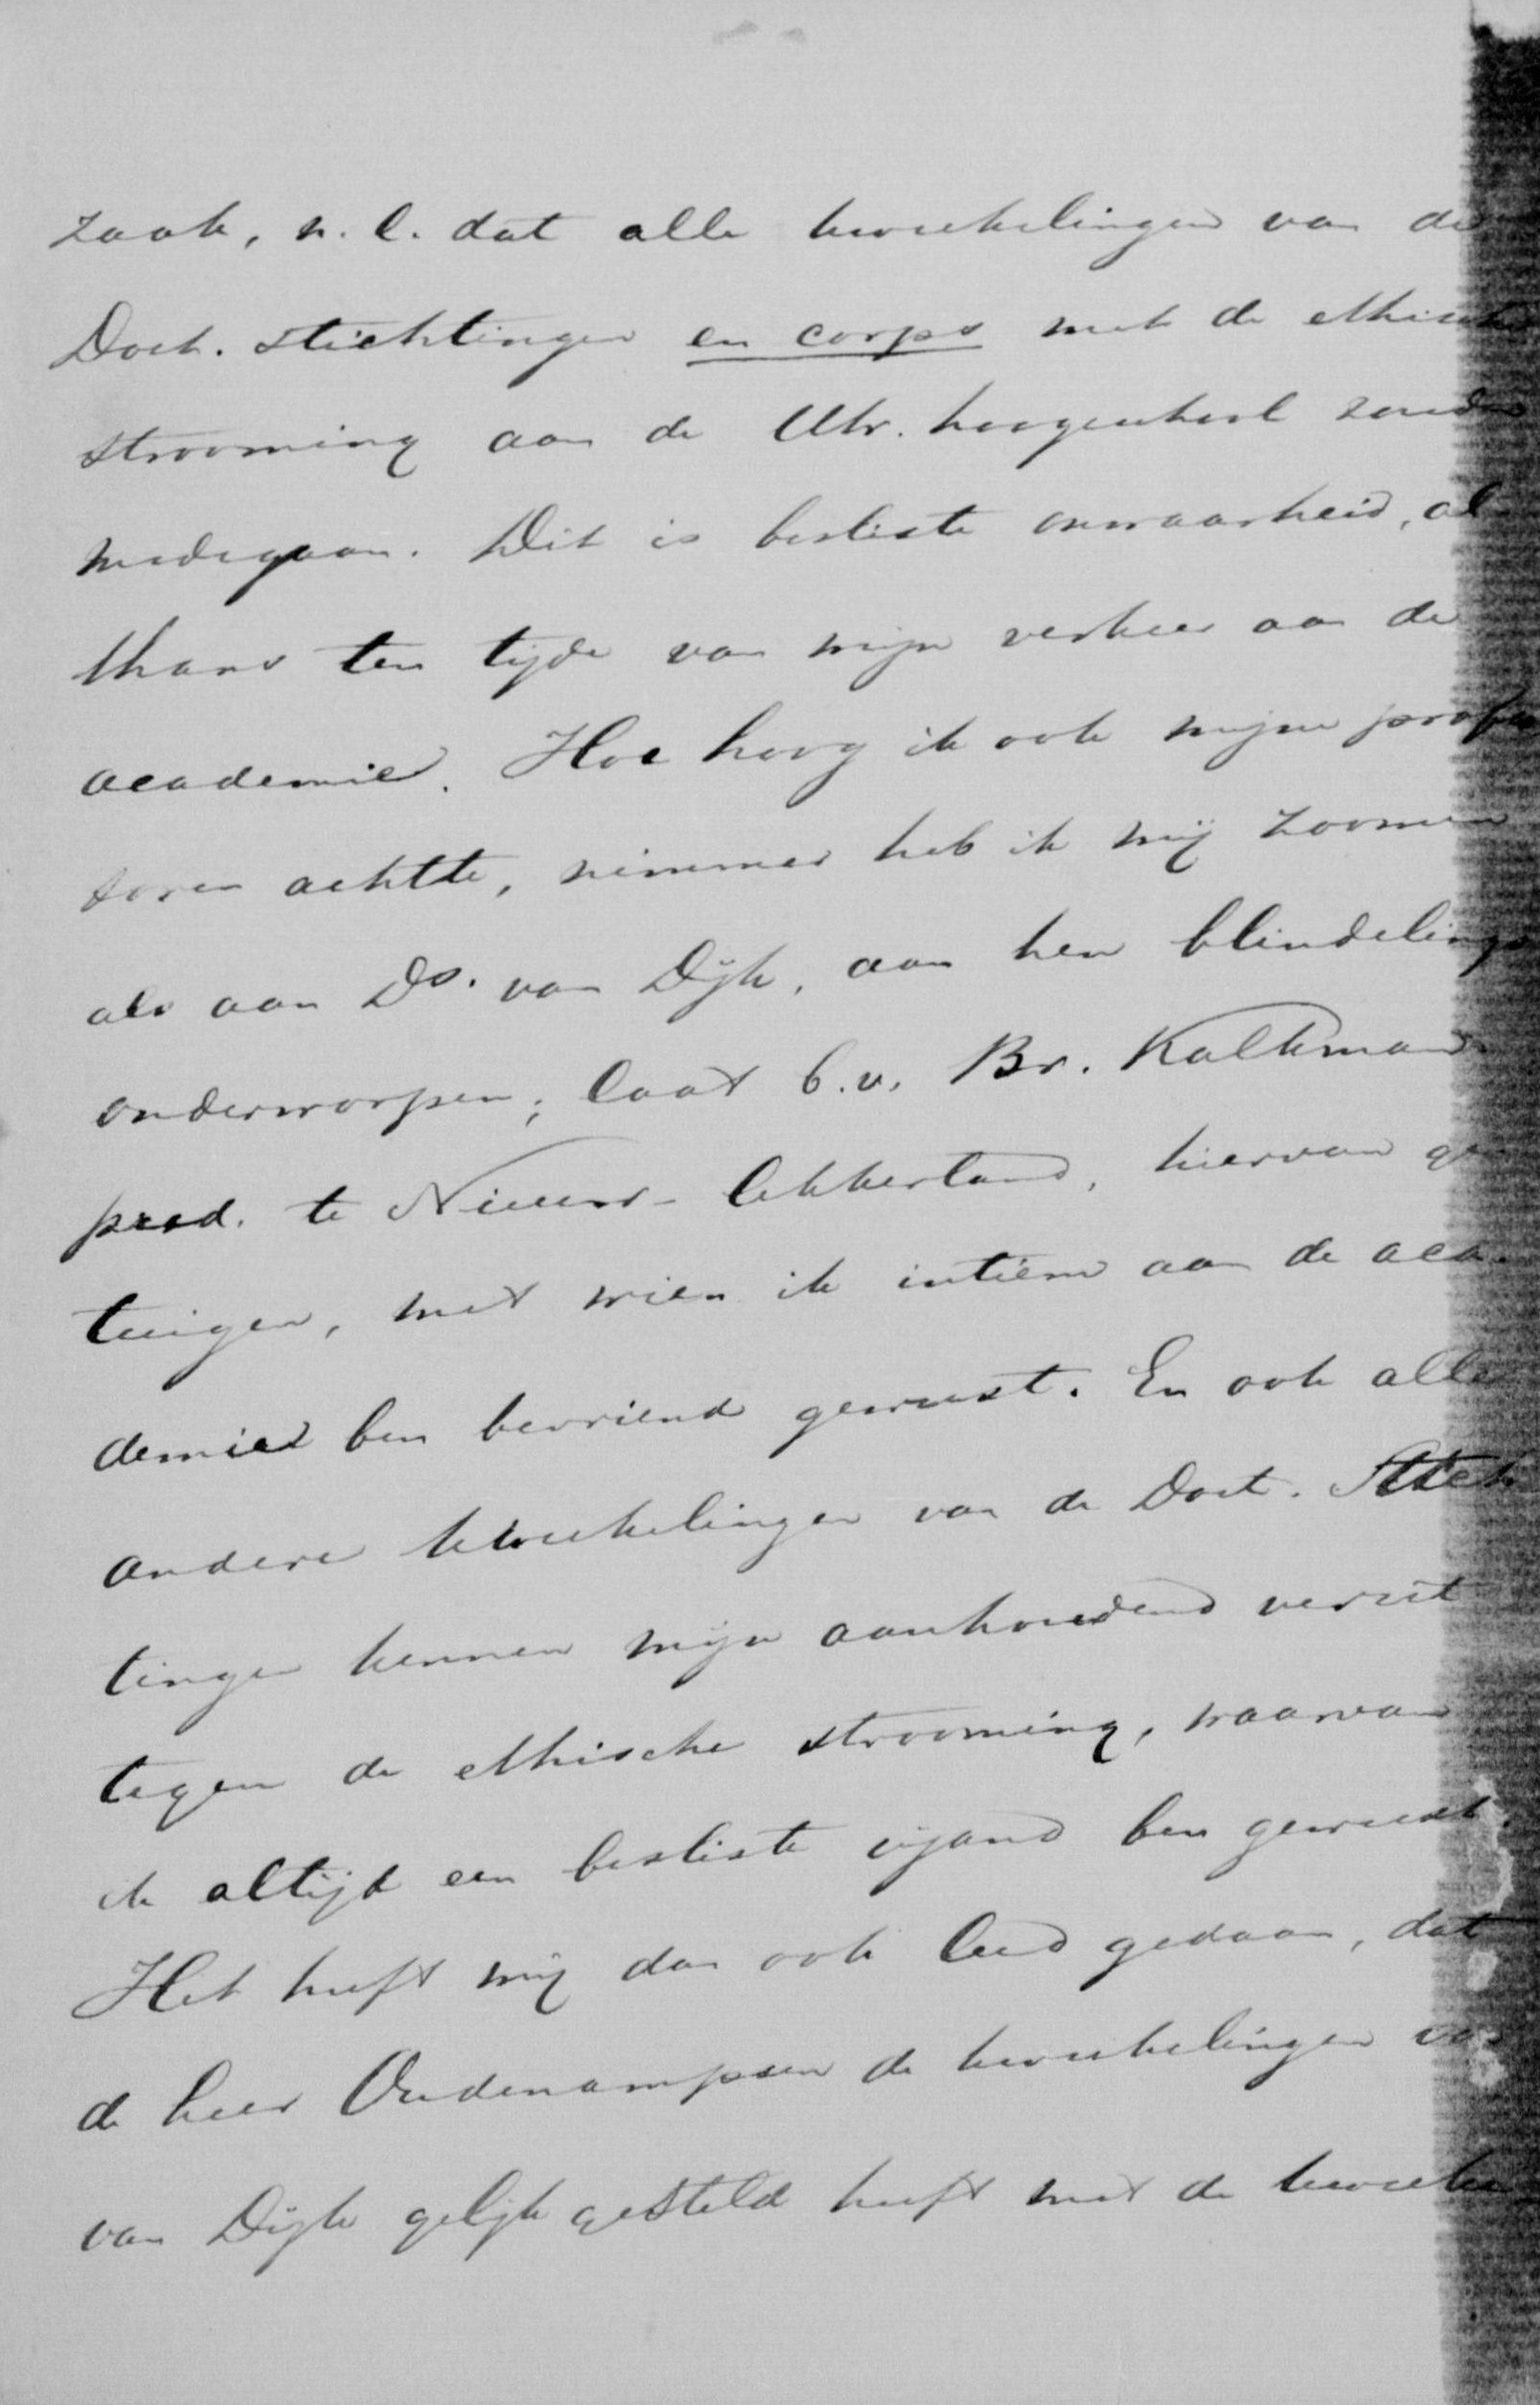 zaak, n.l. dat alle kweekelingen van de
Doet. stichtingen en corps met de ethische
strooming aan de Utr. hoogeschool zouden
medegaan. Dit is besliste onwaarheid, al-
thans ten tijde van mijn verkeer aan de
academie. Hoe hoog ik ook mijne profes
soren achtte, nimmer heb ik mij zoomin
als aan Ds. van Dijk, aan hen blindelings
onderworpen; laat b.v. Br. Kalkman
pred. te Nieuw-Lekkerland, hiervan ge
tuigen, met wien ik intiem aan de aca-
demie ben bevriend geweest. En ook alle
andere kweekelingen van de Doet. Stich
tingen kennen mijn aanhoudend verzet
tegen de ethische strooming, waarvan
ik altijd een besliste vijand ben geweest.
Het heeft mij dan ook leed gedaan, dat
de heer Oudenampsen de kweekelingen van
van Dijk gelijk gesteld heeft met de kweeke